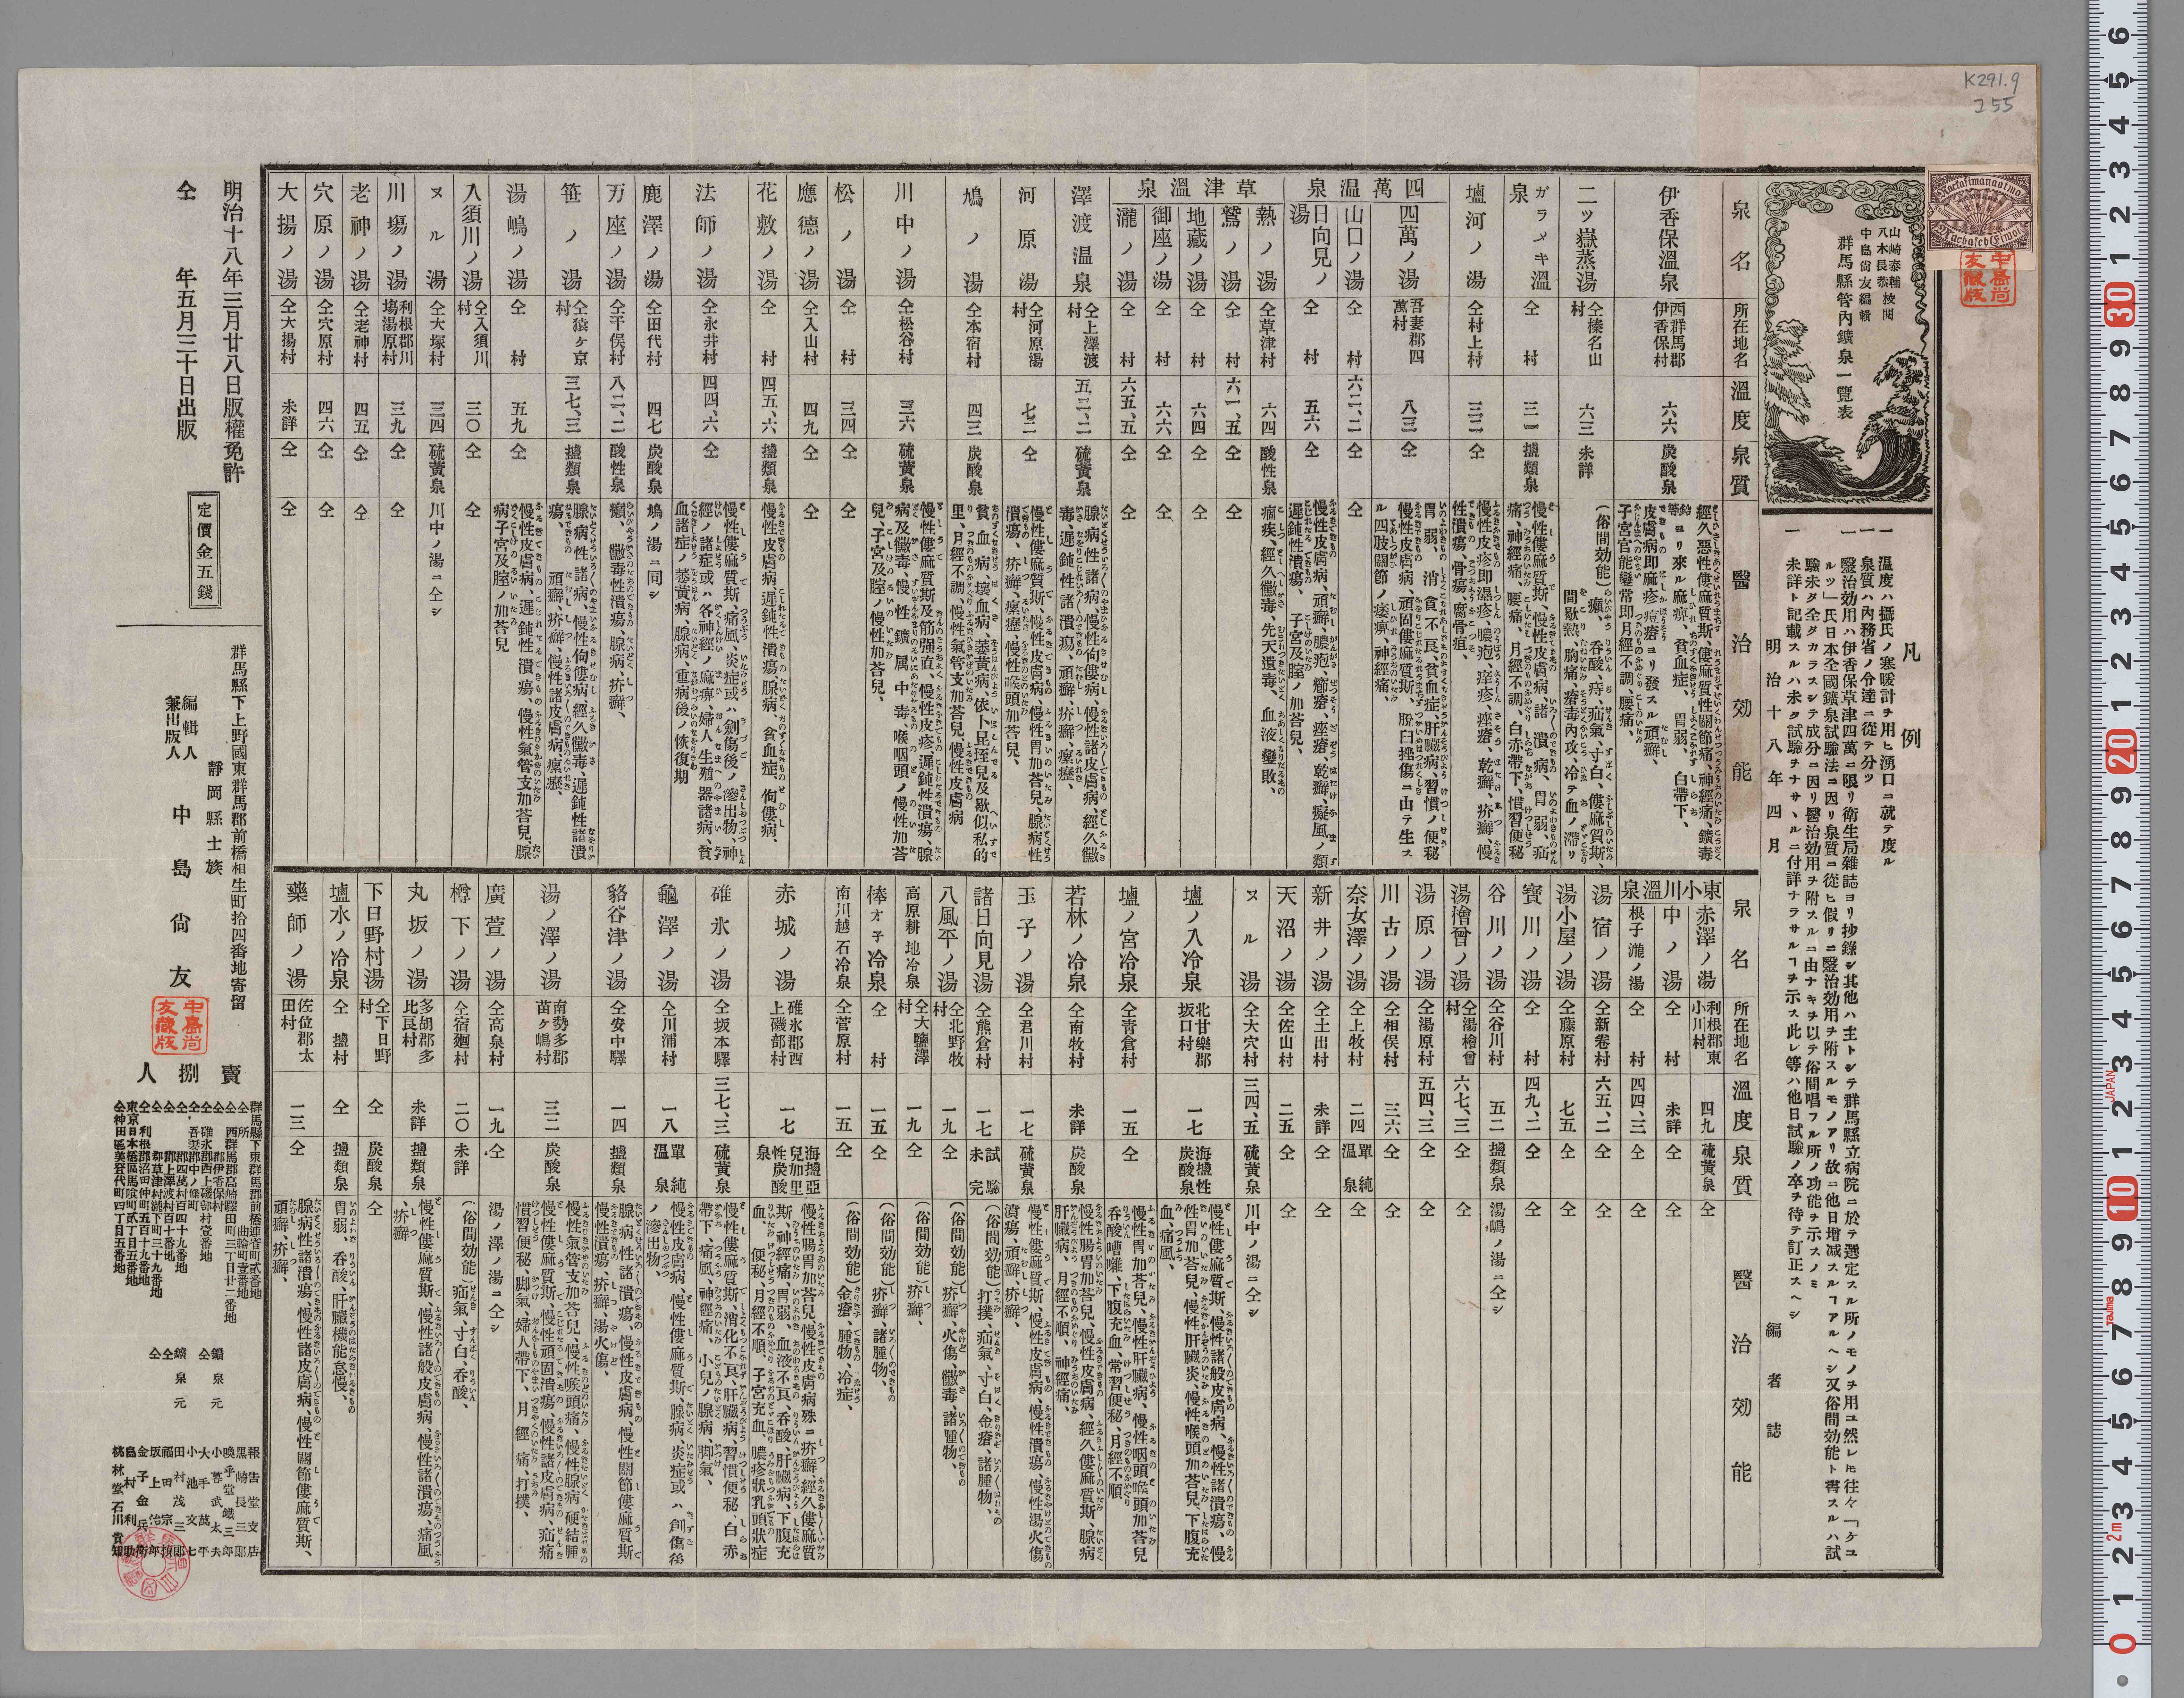 K291.9
I55
山崎泰輔
八木長恭 校閲
中島尙友編輯
群馬縣管內鑛泉一覽表
凡例
一 溫度ハ攝氏ノ寒暖計ヲ用ヒ湧口ニ就テ度ル
一 泉質ハ內務省ノ令達ニ從テ分ツ
一 醫治効用ハ伊香保草津四萬ニ限リ衛生局雜誌ヨリ抄錄シ其他ハ主トシテ群馬縣立病院ニ於テ選定スル所ノモノヲ用ユ然レ𪜈往々「ケユ
ルツ」氏日本全國鑛泉試驗法ニ因リ泉質ニ從ヒ假リニ醫治効用ヲ附スルモノアリ故ニ他日增減スルヿアルヘシ又俗間効能ト書スルハ試
驗未ダ全ダカラスシテ成分ニ因リ醫治効用ヲ附スルニ由ナキヲ以テ俗間唱フル所ノ功能ヲ示スノミ
一 未詳ト記載スルハ未タ試驗ヲナサヽルニ付詳ナラサルヿヲ示ス此レ等ハ他日試驗ノ卒ヲ待テ訂正スヘシ
明治十八年四月 編者誌
泉名 所在地名 溫度 泉質 醫治効能
伊香保溫泉 西群馬郡伊香保村 六六 炭酸泉 經久惡性僂麻質斯、僂麻質性關節痛、神經痛、鑛毒等ヨリ來ル麻痺、貧血症、胃弱、白帶下、皮膚病即麻疹痘瘡ヨリ發スル頑癬、子宮官能變常即月經不調、腰痛、
二ツ嶽蒸湯 仝榛名山村 六三 未詳 (俗間効能)癩、呑酸、痔、疝氣、寸白、僂麻質斯、間歇熱、胸痛、瘡毒內攻、冷テ血ノ滯リ
ガラメキ溫泉 仝村 三一 鹽類泉 慢性僂麻質斯、慢性皮膚病、諸潰病、胃弱、疝痛、神經痛、腰痛、月經不調、白赤帶下、慣習便秘
塩河ノ湯 仝村上村 三二 仝 慢性皮疹即濕疹、膿疱、痒疹、痤瘡、乾癬、疥癬、慢性潰瘍、骨瘍、腐骨疽、
四萬溫泉
四萬ノ湯 吾妻郡四萬村 八三 仝 胃弱、消食不良、貧血症、肝臟病、習慣ノ便秘慢性皮膚病、頑固僂麻質斯、脫臼挫傷ニ由テ生スル四肢關節ノ痿痺、神經痛、
山口ノ湯 仝村 六二、二 仝 仝
日向見ノ湯 仝村 五六 仝 慢性皮膚病、頑癬、膿疱、癤瘡、痤瘡、乾癬、癜風ノ類遲鈍性潰瘍、子宮及膣ノ加荅兒、
草津溫泉
熱ノ湯 仝草津村 六四 酸性泉 痼疾、經久黴毒、先天遺毒、血液變敗、
鷲ノ湯 仝村 六一、五 仝 仝
地藏ノ湯 仝村 六四 仝 仝
御座ノ湯 仝村 六六 仝 仝
瀧ノ湯 仝村 六五、五 仝 仝
澤渡溫泉 仝上澤渡村 五二、二 硫黃泉 腺病性諸病、慢性佝僂病、慢性諸皮膚病、經久黴毒、遲鈍性諸潰瘍、頑癬、疥癬、瘰癧、
河原湯 仝河原湯村 七二 仝 慢性僂麻質斯、慢性皮膚病、慢性胃加荅兒、腺病性潰瘍、疥癬、瘰癧、慢性喉頭加荅兒、
鳩ノ湯 仝本宿村 四三 炭酸泉 貧血病、壞血病、萎黃病、依卜昆垤兒及歇似私的里、月經不調、慢性氣管支加荅兒、慢性皮膚病
川中ノ湯 仝松谷村 三六 硫黃泉 慢性僂麻質斯及筋强直、慢性皮疹、遲鈍性潰瘍、腺病及黴毒、慢性鑛属中毒、喉咽頭ノ慢性加荅兒、子宮及膣ノ慢性加荅兒、
松ノ湯 仝村 三四 仝 仝
應德ノ湯 仝入山村 四九 仝 仝
花敷ノ湯 仝村 四五、六 鹽類泉 慢性皮膚病、遲鈍性潰瘍、腺病、貧血症、佝僂病、
法師ノ湯 仝永井村 四四、六 仝 慢性僂麻質斯、痛風、炎症或ハ創傷後ノ滲出物、神經ノ諸症或ハ各神經ノ麻痺、婦人生殖器諸病、貧血諸症ノ萎黃病、腺病、重病後ノ恢復期
鹿澤ノ湯 仝田代村 四七 炭酸泉 鳩ノ湯ニ同シ
万座ノ湯 仝干俣村 八二、二 酸性泉 癩、黴毒性潰瘍、腺病、疥癬、
笹ノ湯 仝猿ヶ京村 三七、三 鹽類泉 腺病性諸病、慢性佝僂病、經久黴毒、遲鈍性諸潰瘍、頑癬、疥癬、慢性諸皮膚病、瘰癧、
湯嶋ノ湯 仝村 五九 仝 慢性皮膚病、遲鈍性潰瘍、慢性氣管支加荅兒、腺病子宮及膣ノ加荅兒
入須川ノ湯 仝入須川村 三〇 仝 仝
ヌル湯 仝大塚村 三四 硫黃泉 川中ノ湯ニ仝シ
川塲ノ湯 利根郡川塲湯原村 三九 仝 仝
老神ノ湯 仝老神村 四五 仝 仝
穴原ノ湯 仝穴原村 四六 仝 仝
大揚ノ湯 仝大揚村 未詳 仝 仝
泉名 所在地名 溫度 泉質 醫治効能
東小川溫泉
赤澤ノ湯 利根郡東小川村 四九 硫黃泉 仝
中ノ湯 仝村 未詳 仝 仝
根子瀧ノ湯 仝村 四四、三 仝 仝
湯宿ノ湯 仝新卷村 六五、二 仝 仝
湯小屋ノ湯 仝藤原村 七五 仝 仝
寶川ノ湯 仝村 四九、二 仝 仝
谷川ノ湯 仝谷川村 五二 鹽類泉 湯嶋ノ湯ニ仝シ
湯檜曾ノ湯 仝湯檜曾村 六七、三 仝 仝
湯原ノ湯 仝湯原村 五四、三 仝 仝
川古ノ湯 仝相俣村 三六 仝 仝
奈女澤ノ湯 仝上牧村 二四 單純溫泉 仝
新井ノ湯 仝土出村 未詳 仝 仝
天沼ノ湯 仝佐山村 二五 仝 仝
ヌル湯 仝大穴村 三四、五 硫黃泉 川中ノ湯ニ仝シ
塩ノ入冷泉 北甘樂郡坂口村 一七 海鹽性炭酸泉 慢性僂麻質斯、慢性諸般皮膚病、慢性諸潰瘍、慢性胃加荅兒、慢性肝臟炎、慢性喉頭加荅兒、下腹充血、痛風、
塩ノ宮冷泉 仝靑倉村 一五 仝 慢性胃加荅兒、慢性肝臟病、慢性咽頭喉頭加荅兒呑酸嘈囃、下腹充血、常習便秘、月經不順、
若林ノ冷泉 仝南牧村 未詳 炭酸泉 慢性腸胃加荅兒、慢性皮膚病、經久僂麻質斯、腺病肝臟病、月經不順、神經痛、
玉子ノ湯 仝君川村 一七 硫黃泉 慢性僂麻質斯、慢性皮膚病、慢性潰瘍、慢性湯火傷潰瘍、頑癬、疥癬、
諸日向見湯 仝熊倉村 一七 試驗未完 (俗間効能)打撲、疝氣、寸白、金瘡、諸腫物、
八風平ノ湯 仝北野牧村 一九 仝 (俗間効能)疥癬、火傷、黴毒、諸腫物、
高原耕地冷泉 仝大鹽澤村 一九 仝 (俗間効能)疥癬、
棒オ子冷泉 仝村 一五 仝 (俗間効能)疥癬、諸腫物、
南川越石冷泉 仝菅原村 一五 仝 (俗間効能)金瘡、腫物、冷症、
赤城ノ湯 碓氷郡西上磯部村 一七 海鹽亞兒加里性炭酸泉 慢性腸胃加荅兒、慢性皮膚病殊ニ疥癬、經久僂麻質斯、神經痛、胃弱、血液不良、呑酸、肝臟病、下腹充血、便秘、月經不順、子宮充血、膿疹狀乳頭狀症
碓氷ノ湯 仝坂本驛 三七、三 硫黃泉 慢性僂麻質斯、消化不良、肝臟病、習慣便秘、白赤帶下、痛風、神經痛、小兒ノ腺病、脚氣、
龜澤ノ湯 仝川浦村 一八 單純溫泉 慢性皮膚病、慢性僂麻質斯、腺病、炎症或ハ創傷後ノ滲出物、
貉谷津ノ湯 仝安中驛 一四 鹽類泉 腺病性諸潰瘍、慢性皮膚病、慢性關節僂麻質斯慢性潰瘍、疥癬、湯火傷、
湯ノ澤ノ湯 南勢多郡苗ヶ嶋村 三二 炭酸泉 慢性氣管支加荅兒、慢性喉頭痛、慢性腺病、硬結腫慢性僂麻質斯、慢性頑固潰瘍、慢性諸皮膚病、疝痛慣習便秘、脚氣、婦人帶下、月經痛、打撲、
廣萱ノ湯 仝高泉村 一九 仝 湯ノ澤ノ湯ニ仝シ
樽下ノ湯 仝宿廻村 二〇 未詳 (俗間効能)疝氣、寸白、呑酸、
丸坂ノ湯 多胡郡多比良村 未詳 鹽類泉 慢性僂麻質斯、慢性諸般皮膚病、慢性諸潰瘍、痛風疥癬、
下日野村湯 仝下日野村 仝 炭酸泉 仝
塩水ノ冷泉 仝鹽村 仝 鹽類泉 胃弱、呑酸、肝臟機能怠慢、
藥師ノ湯 佐位郡太田村 一三 仝 腺病性諸潰瘍、慢性諸皮膚病、慢性關節僂麻質斯、頑癬、疥癬、
明治十八年三月廿八日版權免許
仝 年五月三十日出版
定價金五錢
群馬縣下上野國東群馬郡前橋相生町拾四番地寄留
靜岡縣士族
編輯人
兼出版人 中島尙友
中島尙友藏版
賣捌人